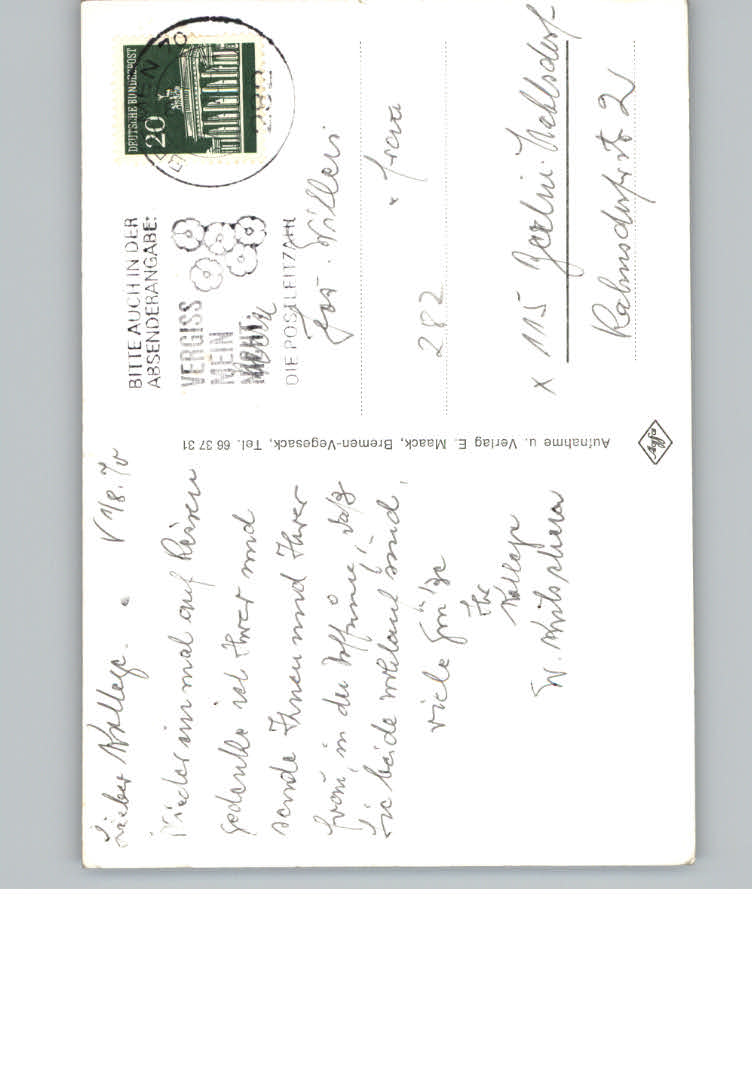 Lieber Kollege.
V 1/8. 70
Wieder einmal auf Reisen
gedenke ich Ihrer und
sende Ihnen und Ihrer
Frau, in der Hoffnung, daß
Sie beide wohlauf sind,
viele Grüße
Ihr
Kollege
W.
Aufnahme u. Verlag E. Maack, Bremen-Vegesack, Tel. 66 37 31
Agfa
BITTE AUCH IN DER
ABSENDERANGABE:
VERGISS
MEIN
NICHT
DIE POSTLEITZAHL
DEUTSCHE BUNDESPOST
20
282
x 115 Berlin-Mahlsdorf
Rahnsdorferstr 2